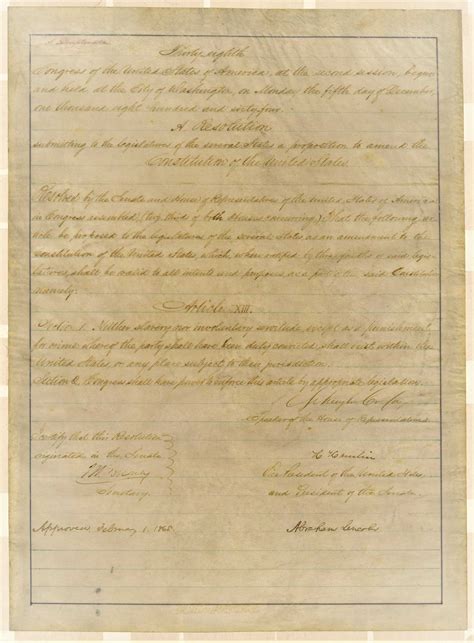 Thirty-eighth
Congress of the United States of America, at the second session, begun
and held at the City of Washington, on Monday the fifth day of December,
one thousand eight hundred and sixty-four.
A Resolution
submitting to the legislatures of the several States a proposition to amend the
Constitution of the United States.
Resolved by the Senate and House of Representatives of the United States of America
in Congress assembled, (two thirds of both Houses concurring,) That the following
be proposed to the legislatures of the several States as an amendment to the
constitution of the United States, which, when ratified by three fourths of said legisla-
tures, shall be valid to all intents and purposes, as a part of the said Constitution
namely:
Article XIII.
Section 1. Neither slavery nor involuntary servitude, except as a punishment
for crime whereof the party shall have been duly convicted, shall exist within the
United States, or any place subject to their jurisdiction.
Section 2. Congress shall have power to enforce this article by appropriate legislation.
Schuyler Colfax
Speaker of the House of Representatives
I certify that this Resolution
originated in the Senate
Secretary
H Hamlin
Vice President of the United States
and President of the Senate.
Approved February 1. 1865.
Abraham Lincoln